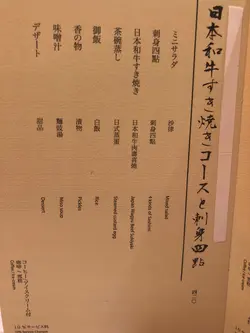 日本和牛すき焼きコースと刺身四點
ミニサラダ 沙律 Mixed salad
刺身四點 刺身四點 4 kinds of Sashimi
日本和牛すき焼き 日本和牛肉壽喜燒 Japan Wagyu Beef Sukiyaki
茶碗蒸し 日式蒸蛋 Steamed custard egg
御飯 白飯 Rice
香の物 漬物 Pickles
味噌汁 麵豉湯 Miso soup
デザート 甜品 Dessert
コーヒー・アイスクリーム付
咖啡・雪糕